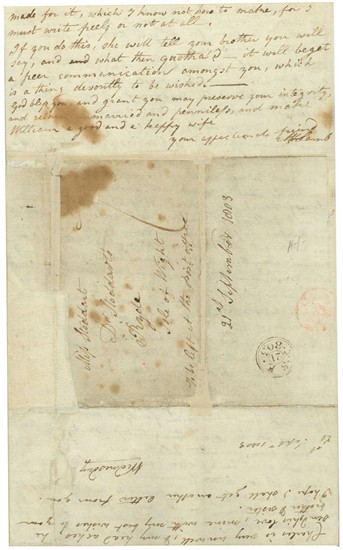 made for it, which I know not how to make, for I
must write freely or not at all.
If you do this, she will tell your brother you will
say, and what then quotha'd — it will beget
a free communication amongst you, which
is a thing devoutly to be wished.
God bless you, and grant you may preserve your integrity,
and remain unmarried and pennyless, and make
William a good and a happy wife
your affectionate friend
M Lamb
Miss Stoddart
Dr Stoddart's
Ryde
Isle of Wight
To be left at the Post office
21st September 1803
21st Sept 1803
Wednesday
Charles is very unwell, & my head aches. he
sends his love, mine with my best wishes to your
brother & sister.
I hope I shall get another letter from you.